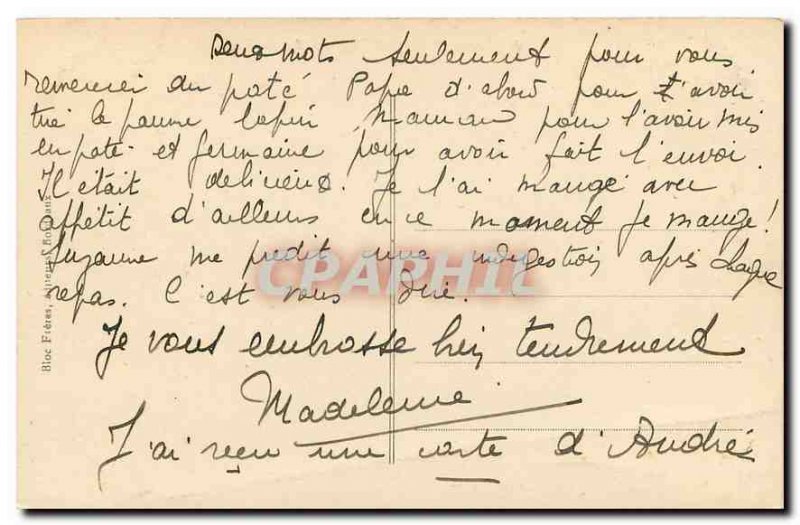 Deux mots seulement pour vous
remercier du paté Papa d'abord pour l'avoir
tué le pauvre lapin Maman pour l'avoir mis
en paté - et Germaine pour avoir fait l'envoi.
Il était delicieux. Je l'ai mangé avec
appétit d'ailleurs en ce moment je mange!
Suzanne me prédit une indigestion après chaque
repas. C'est vous dire.
Je vous embrasse bien tendrement
Madeleine
J'ai reçu une carte d'André
Bloc Frères, Bordeaux
CPARPHIL